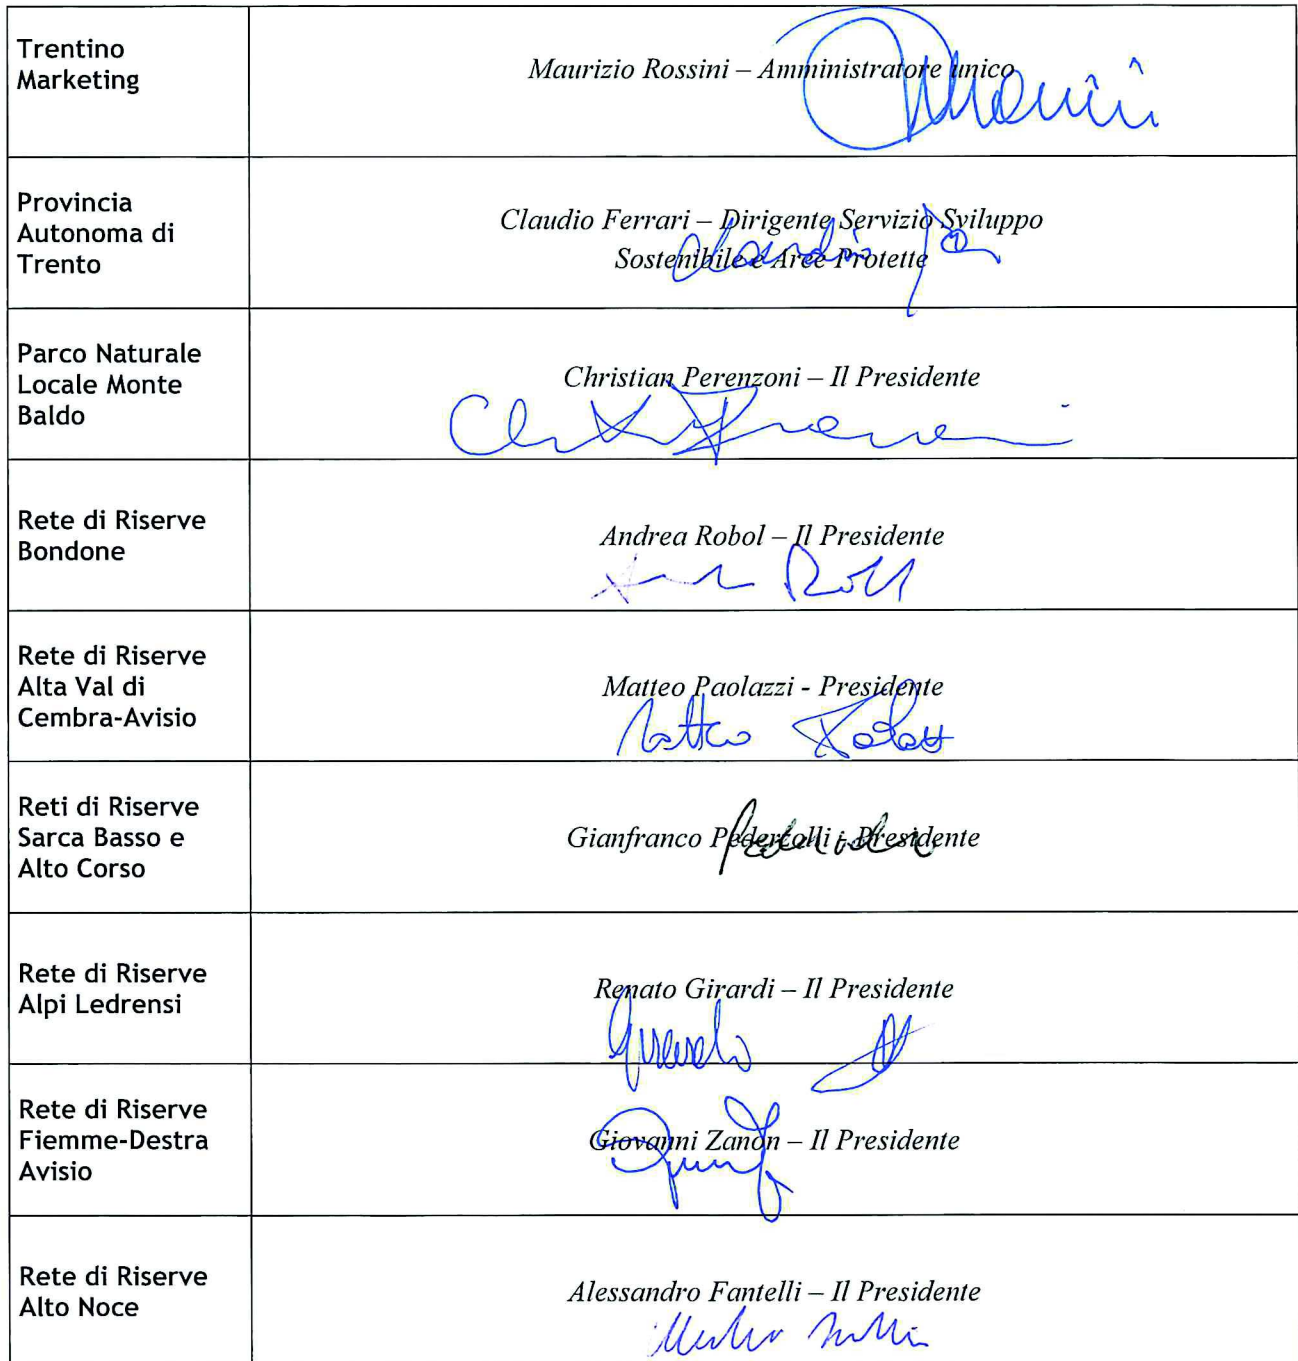 Trentino
Marketing
Maurizio Rossini – Amministratore unico
Provincia
Autonoma di
Trento
Claudio Ferrari – Dirigente Servizio Sviluppo
Sostenibile e Aree Protette
Parco Naturale
Locale Monte
Baldo
Christian Perenzoni – Il Presidente
Rete di Riserve
Bondone
Andrea Robol – Il Presidente
Rete di Riserve
Alta Val di
Cembra-Avisio
Matteo Paolazzi - Presidente
Reti di Riserve
Sarca Basso e
Alto Corso
Gianfranco Pederzolli - Presidente
Rete di Riserve
Alpi Ledrensi
Renato Girardi – Il Presidente
Rete di Riserve
Fiemme-Destra
Avisio
Giovanni Zanon – Il Presidente
Rete di Riserve
Alto Noce
Alessandro Fantelli – Il Presidente